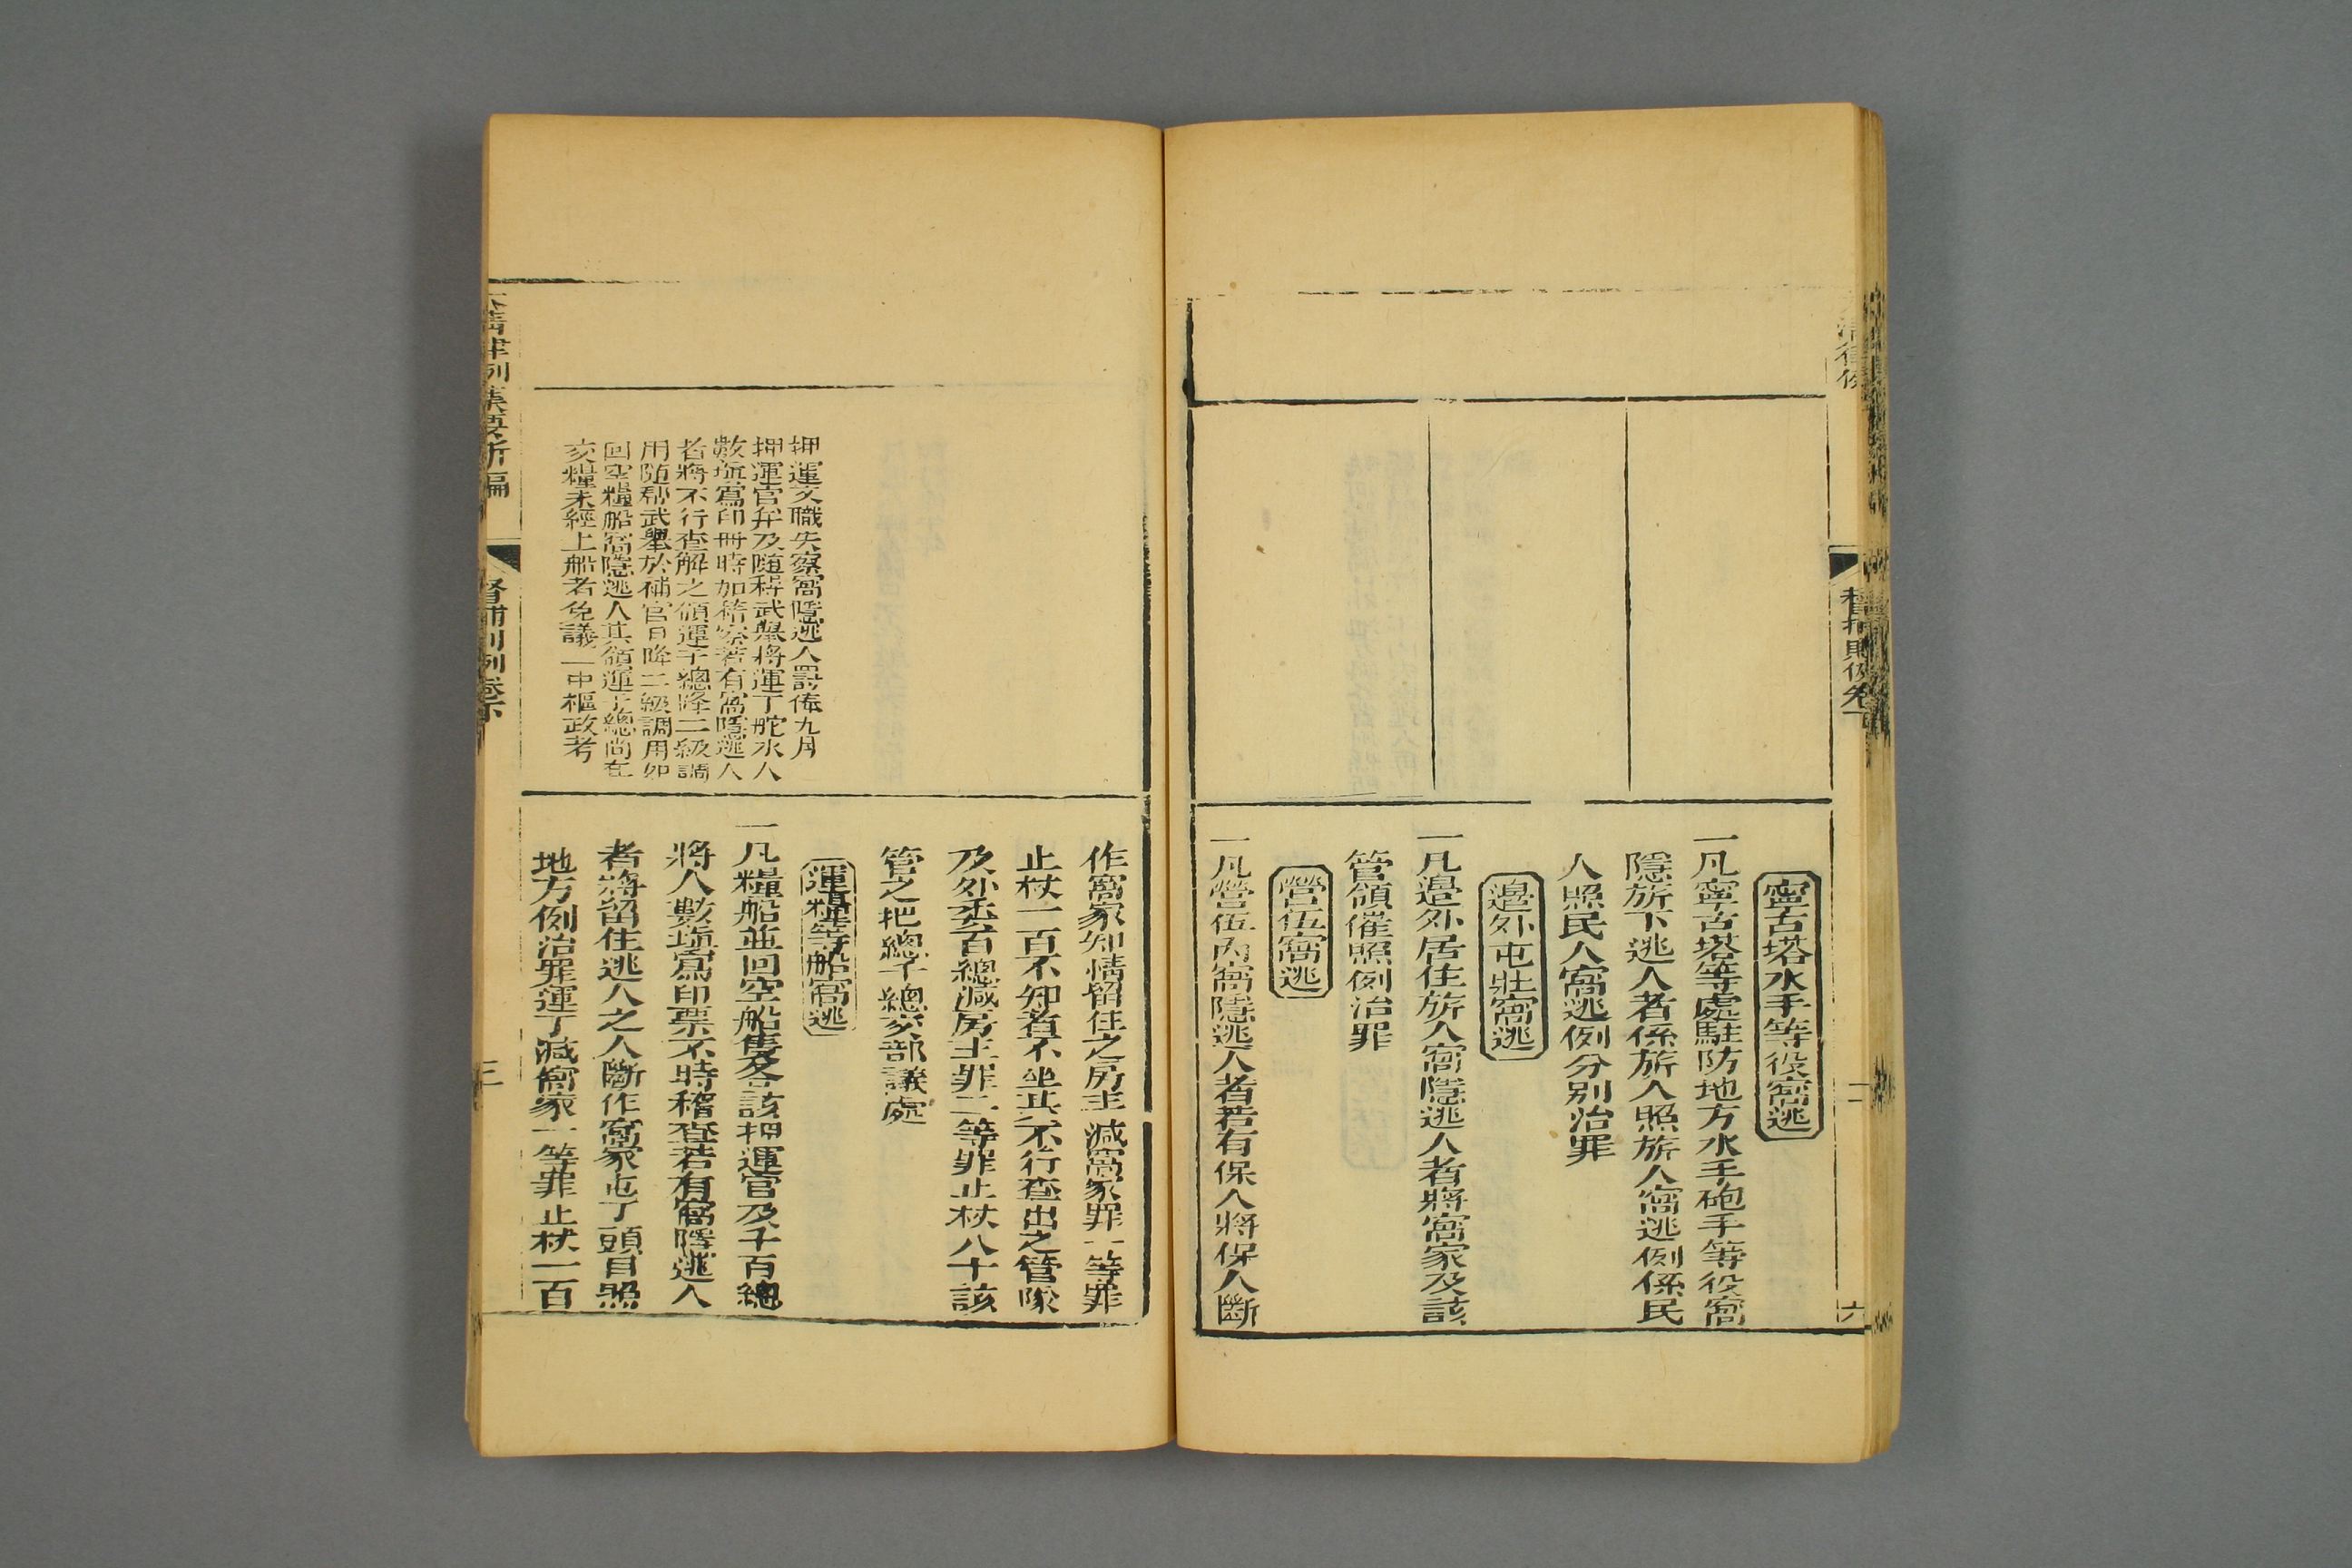 寧古塔水手等役窩逃
一凡寧古塔等處駐防地方水手砲手等役窩
隱旂下逃人者係旂人照旂人窩逃例係民
人照民人窩逃例分别治罪
邉外屯壯窩逃
一凡邉外居住旂人窩隱逃人者將窩家及該
管領催照例治罪
營伍窩逃
一凡營伍內窩隱逃人者若有保人將保人斷
督捕則例卷下
二
六
作窩家知情留住之房主減窩家罪一等罪
止杖一百不知者不坐其不行查出之管隊
及外委百總減房主罪二等罪止杖八十該
管之把總千總交部議處
運糧等船窩逃
一凡糧船並回空船隻各該押運官及千百總
將人數塡寫印票不時稽查若有窩隱逃人
者將留住逃人之人斷作窩家屯丁頭目照
地方例治罪運丁減窩家一等罪止杖一百
押運文職失察窩隱逃人罰俸九月
押運官弁及随幇武舉將運丁舵水人
數塡寫印冊時加稽察若有窩隱逃人
者將不行查解之領運千總降二級調
用随幇武舉於補官日降二級調用如
回空糧船窩隱逃人其領運千總尚在
交糧未經上船者免議 中樞政考
大清律例集要新編
督捕則例卷下
三